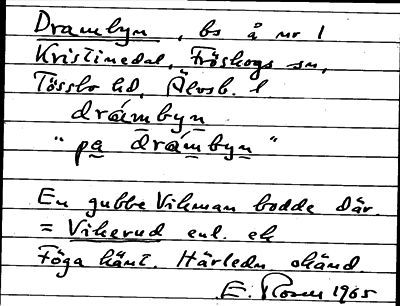 Drambyn, bs å nr 1
Kristinedal, Fröskogs sn,
Tössbo hd, Älvsb. l
drámbyn
"pa drámbyn"
En gubbe Vikman bodde där.
= Vikerud enl. ek
Föga känt. Härledn okänd.
E. Rosen 1965